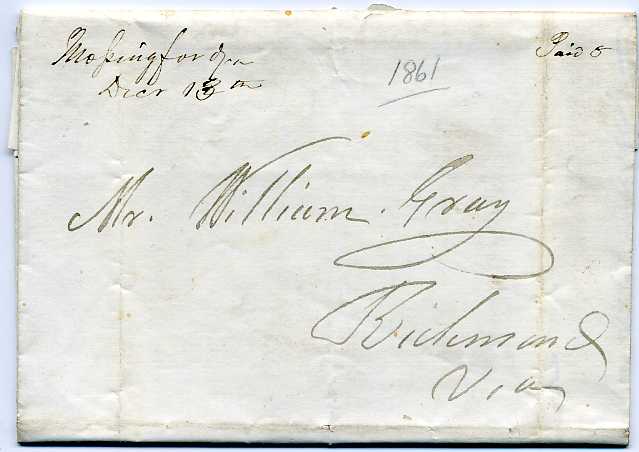 Mossingford Va
Decr 13th
1861
Paid 5
Mr. William Gray
Richmond
Via